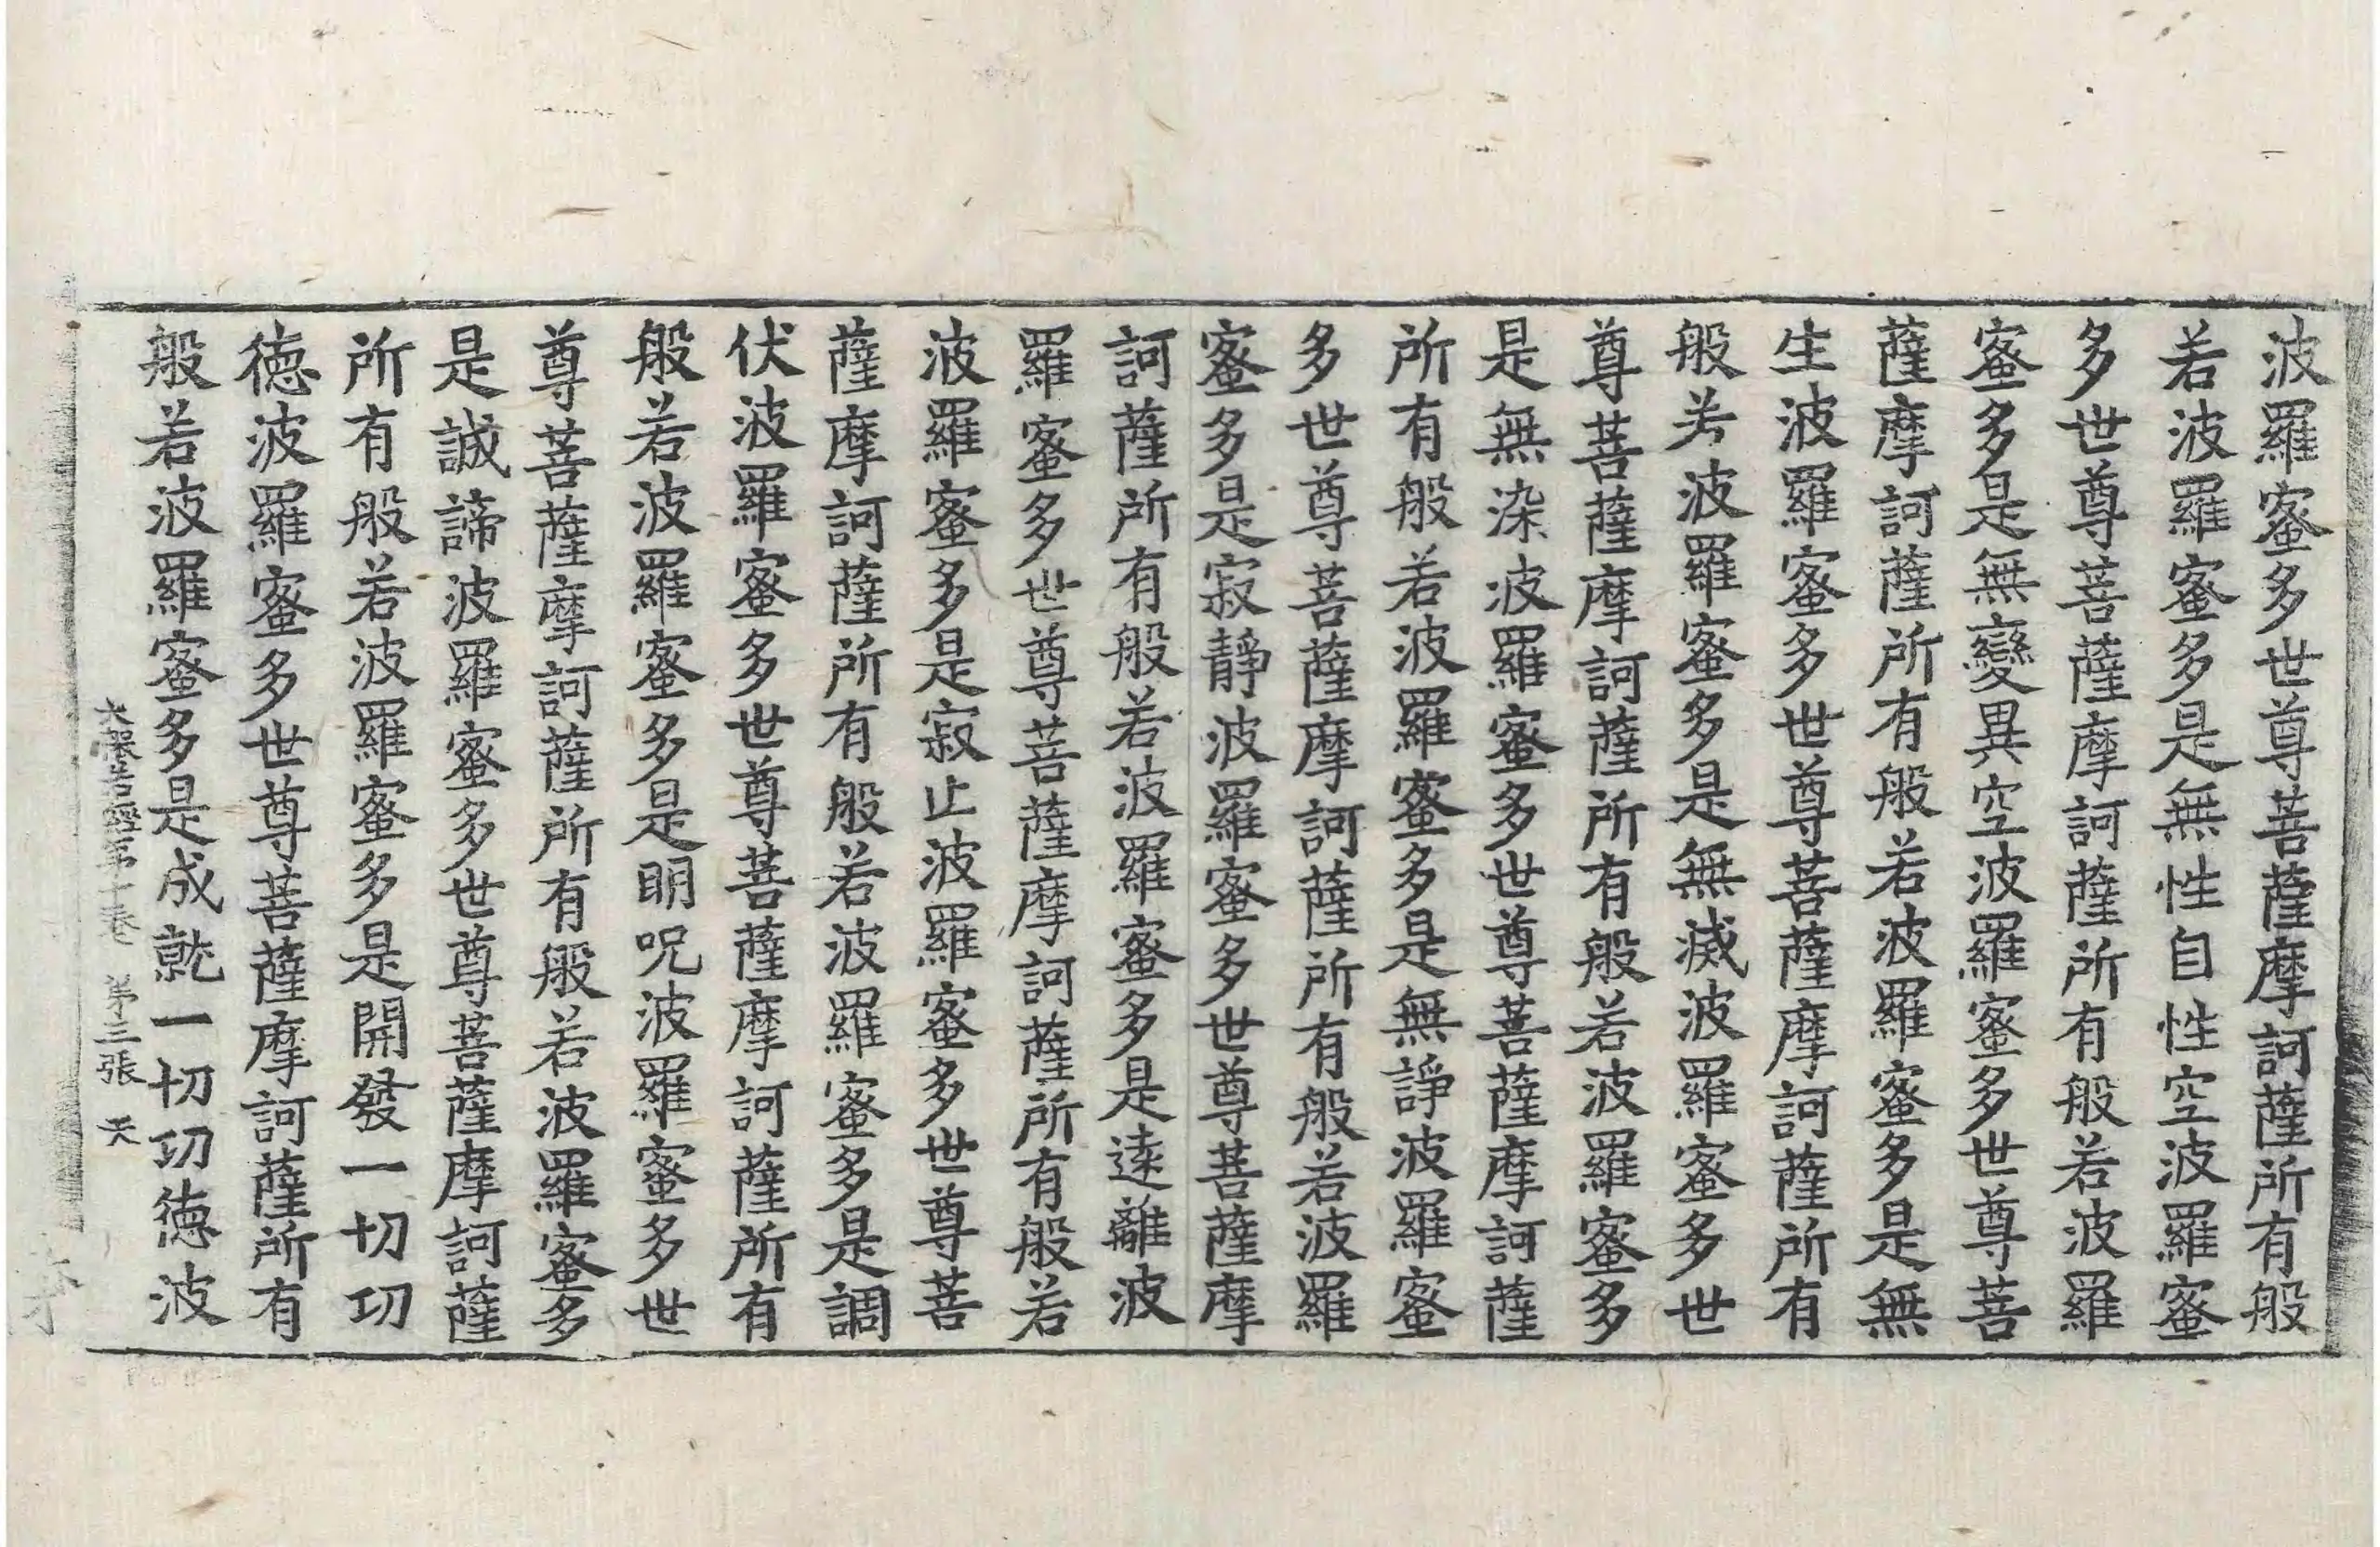 波羅蜜多世尊菩薩摩訶薩所有般
若波羅蜜多是無性自性空波羅蜜
多世尊菩薩摩訶薩所有般若波羅
蜜多是無變異空波羅蜜多世尊菩
薩摩訶薩所有般若波羅蜜多是無
生波羅蜜多世尊菩薩摩訶薩所有
般若波羅蜜多是無滅波羅蜜多世
尊菩薩摩訶薩所有般若波羅蜜多
是無染波羅蜜多世尊菩薩摩訶薩
所有般若波羅蜜多是無諍波羅蜜
多世尊菩薩摩訶薩所有般若波羅
蜜多是寂靜波羅蜜多世尊菩薩摩
訶薩所有般若波羅蜜多是遠離波
羅蜜多世尊菩薩摩訶薩所有般若
波羅蜜多是寂止波羅蜜多世尊菩
薩摩訶薩所有般若波羅蜜多是調
伏波羅蜜多世尊菩薩摩訶薩所有
般若波羅蜜多是明呪波羅蜜多世
尊菩薩摩訶薩所有般若波羅蜜多
是誠諦波羅蜜多世尊菩薩摩訶薩
所有般若波羅蜜多是開發一切功
德波羅蜜多世尊菩薩摩訶薩所有
般若波羅蜜多是成就一切功德波
大般若經第十卷 第三張 天